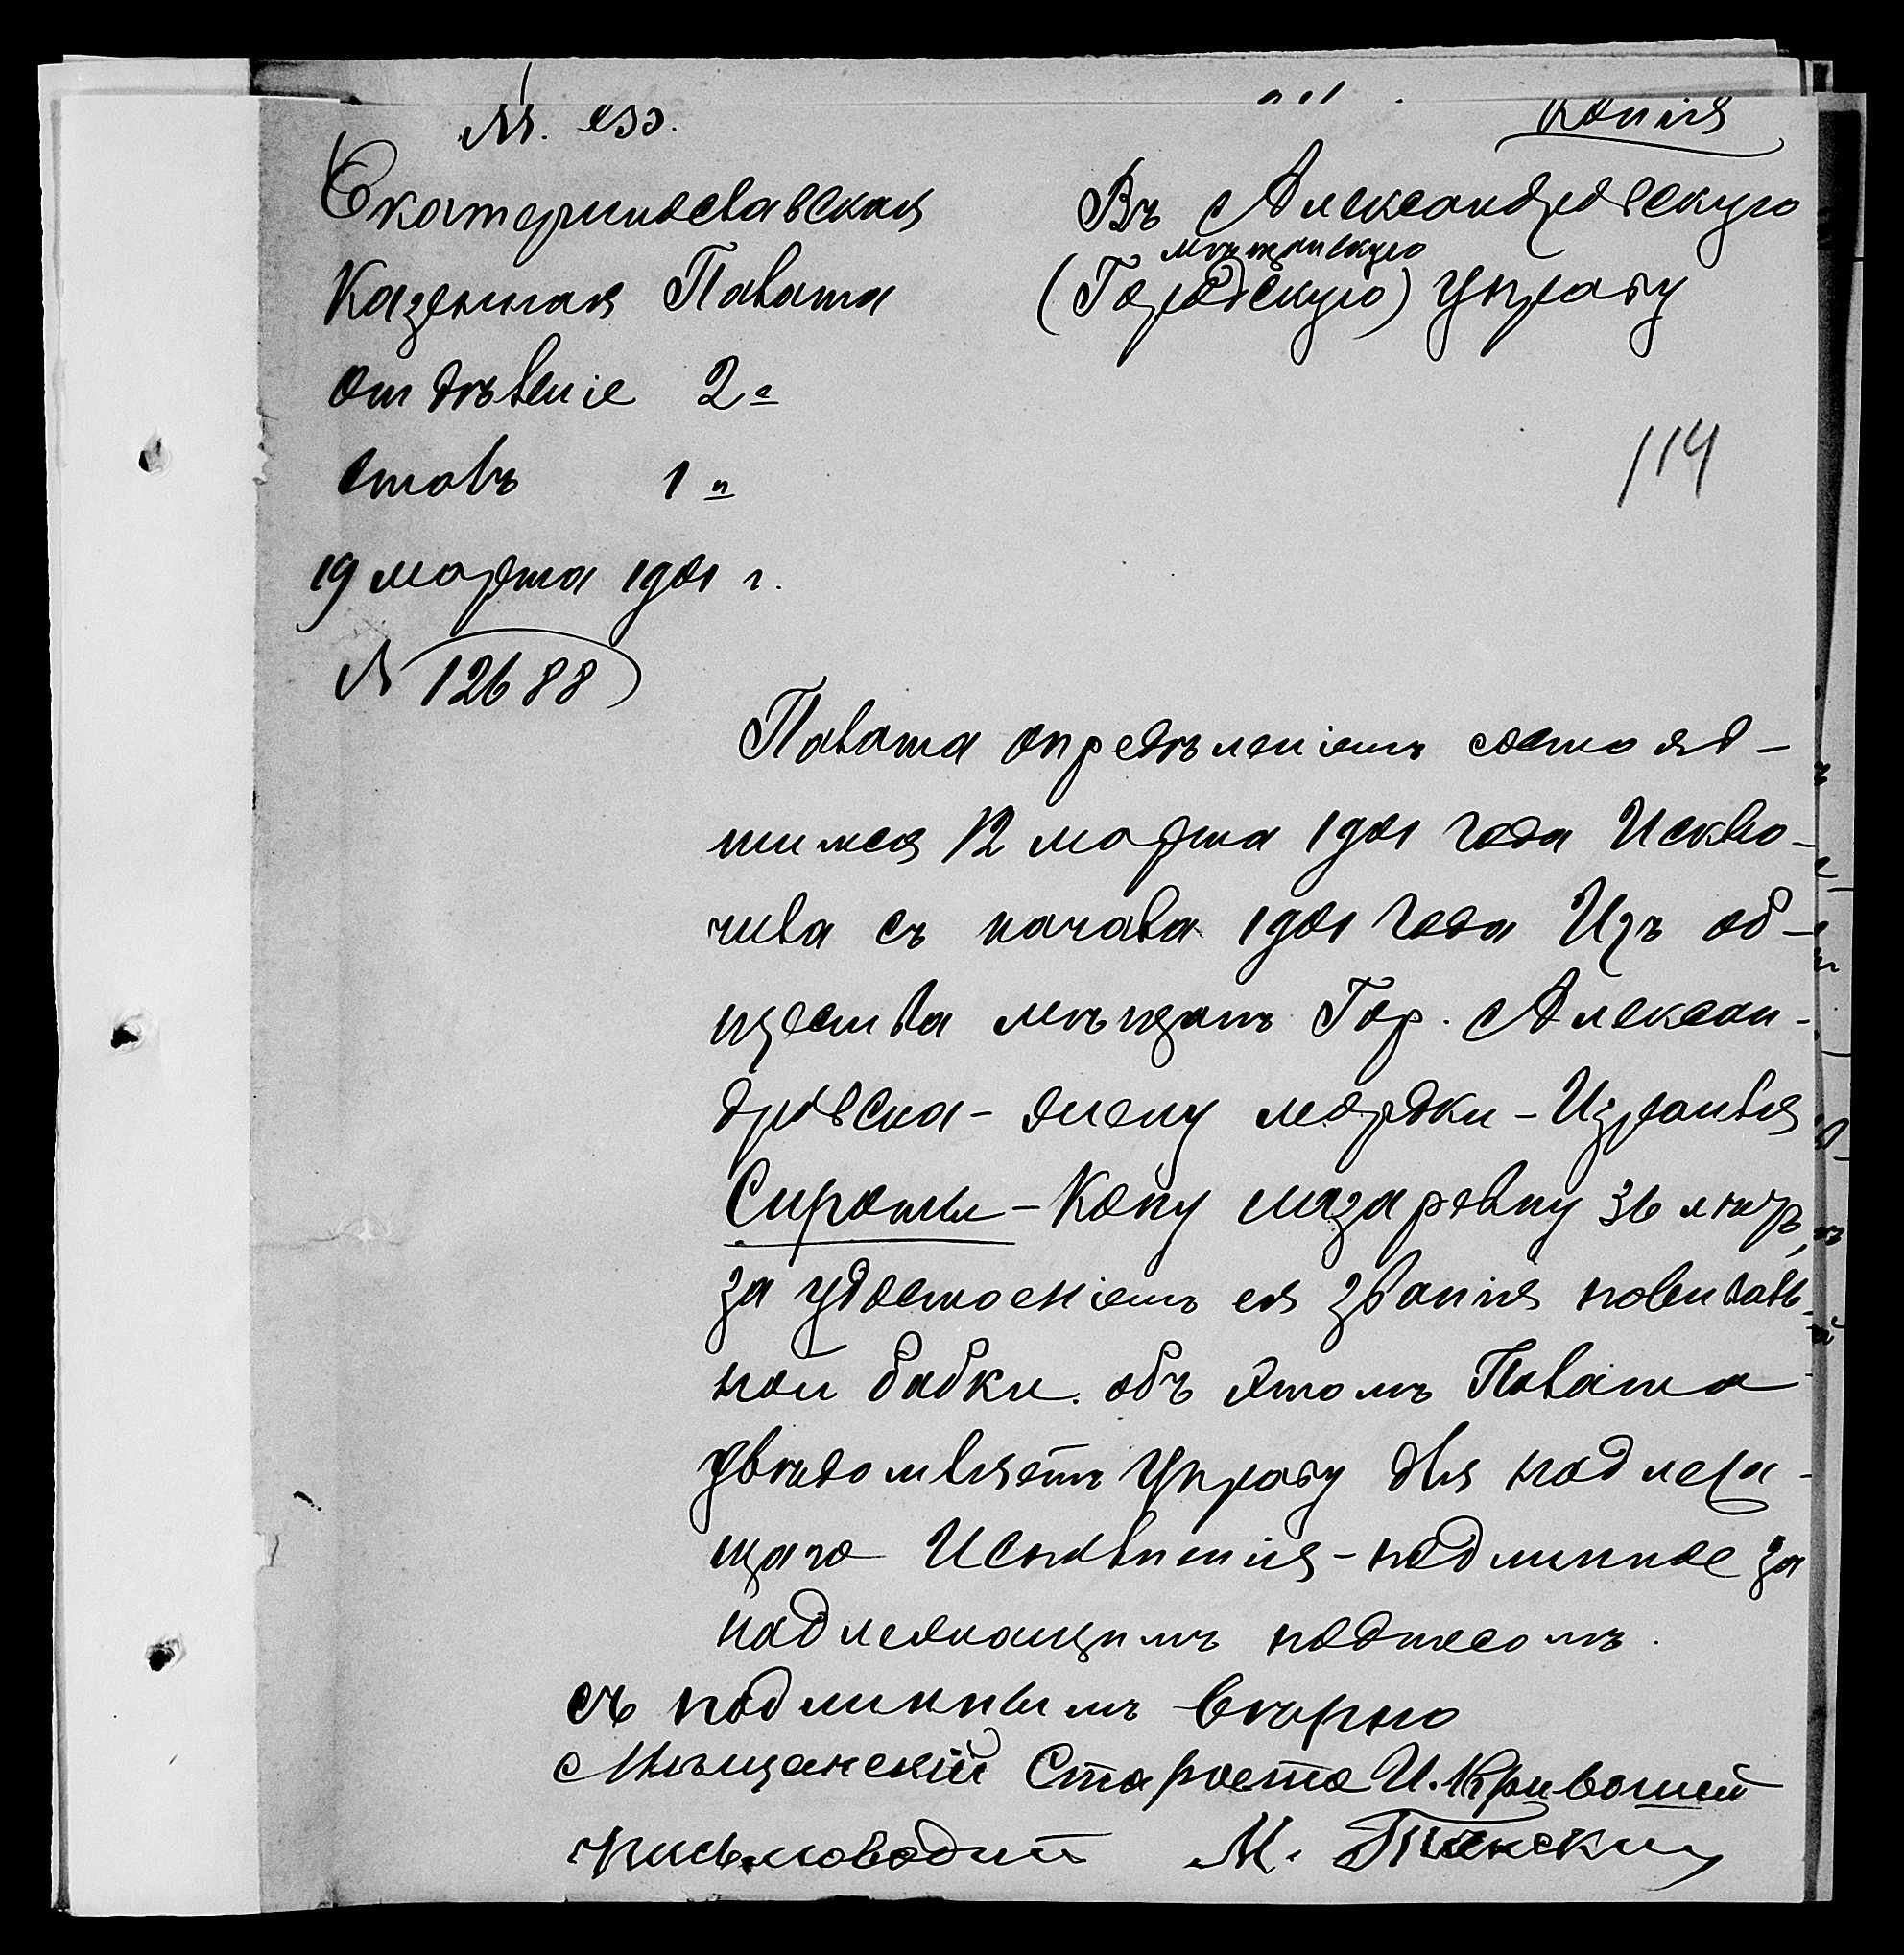 М. Ф.
Копія
Екатеринославская
Казенная Палата
Отдѣленіе 2е
Столъ 1й
19 марта 1901 г.
№ 12688
Въ Александровскую
мѣщанскую
(Городскую) Управу
114
Палата опредѣленіемъ состояв-
шимся 12 марта 1901 года Исклю-
чила съ начала 1901 года Изъ об-
щества мѣщанъ Гор. Алексан-
дровска - жену мордки - Израиля
Сироты - Хану лазаревну 36 лѣтъ,
за удостоеніемъ ея званія повиваль-
ной бабки. объ этомъ Палата
увѣдомляетъ Управу для надлежа-
щаго Исполненія - подлинное за
надлежащимъ подписомъ.
съ подлиннымъ вѣрно
Мѣщанскій Староста И. Кривошей
письмоводит М.